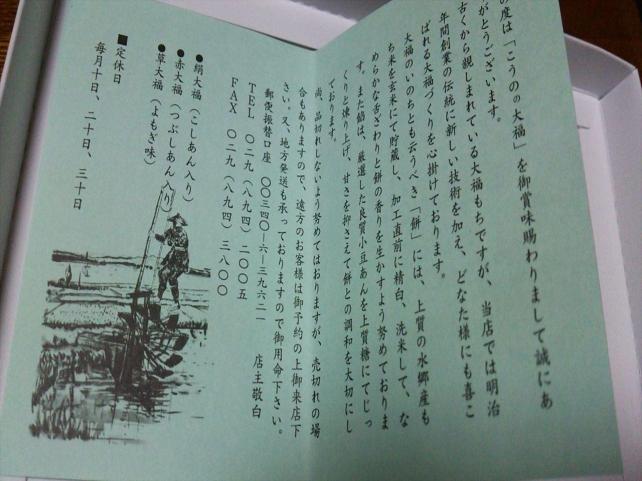 の度は「こうのの大福」を御賞味賜わりまして誠にあ
がとうございます。
古くから親しまれている大福もちですが、当店では明治
年間創業の伝統に新しい技術を加え、どなた様にも喜こ
ばれる大福づくりを心掛けております。
大福のいのちとも云うべき「餅」には、上質の水郷産も
ち米を玄米にて貯蔵し、加工直前に精白、洗米して、な
めらかな舌ざわりと餅の香りを生かすよう努めておりま
す。また餡は、厳選した良質小豆あんを上質糖にてじっ
くりと煉り上げ、甘さを抑さえて餅との調和を大切にし
ております。
尚、品切れしないよう努めてはおりますが、売切れの場
合もありますので、遠方のお客様は御予約の上御来店下
さい。又、地方発送も承っておりますので御用命下さい。
店主敬白
郵便振替口座 〇〇三四〇―六―三九六二一
TEL 〇二九(八九四)二〇〇五
FAX 〇二九(八九四)三八〇〇
●絹大福(こしあん入り)
●赤大福(つぶしあん入り)
●草大福(よもぎ味)
■定休日
毎月十日、二十日、三十日